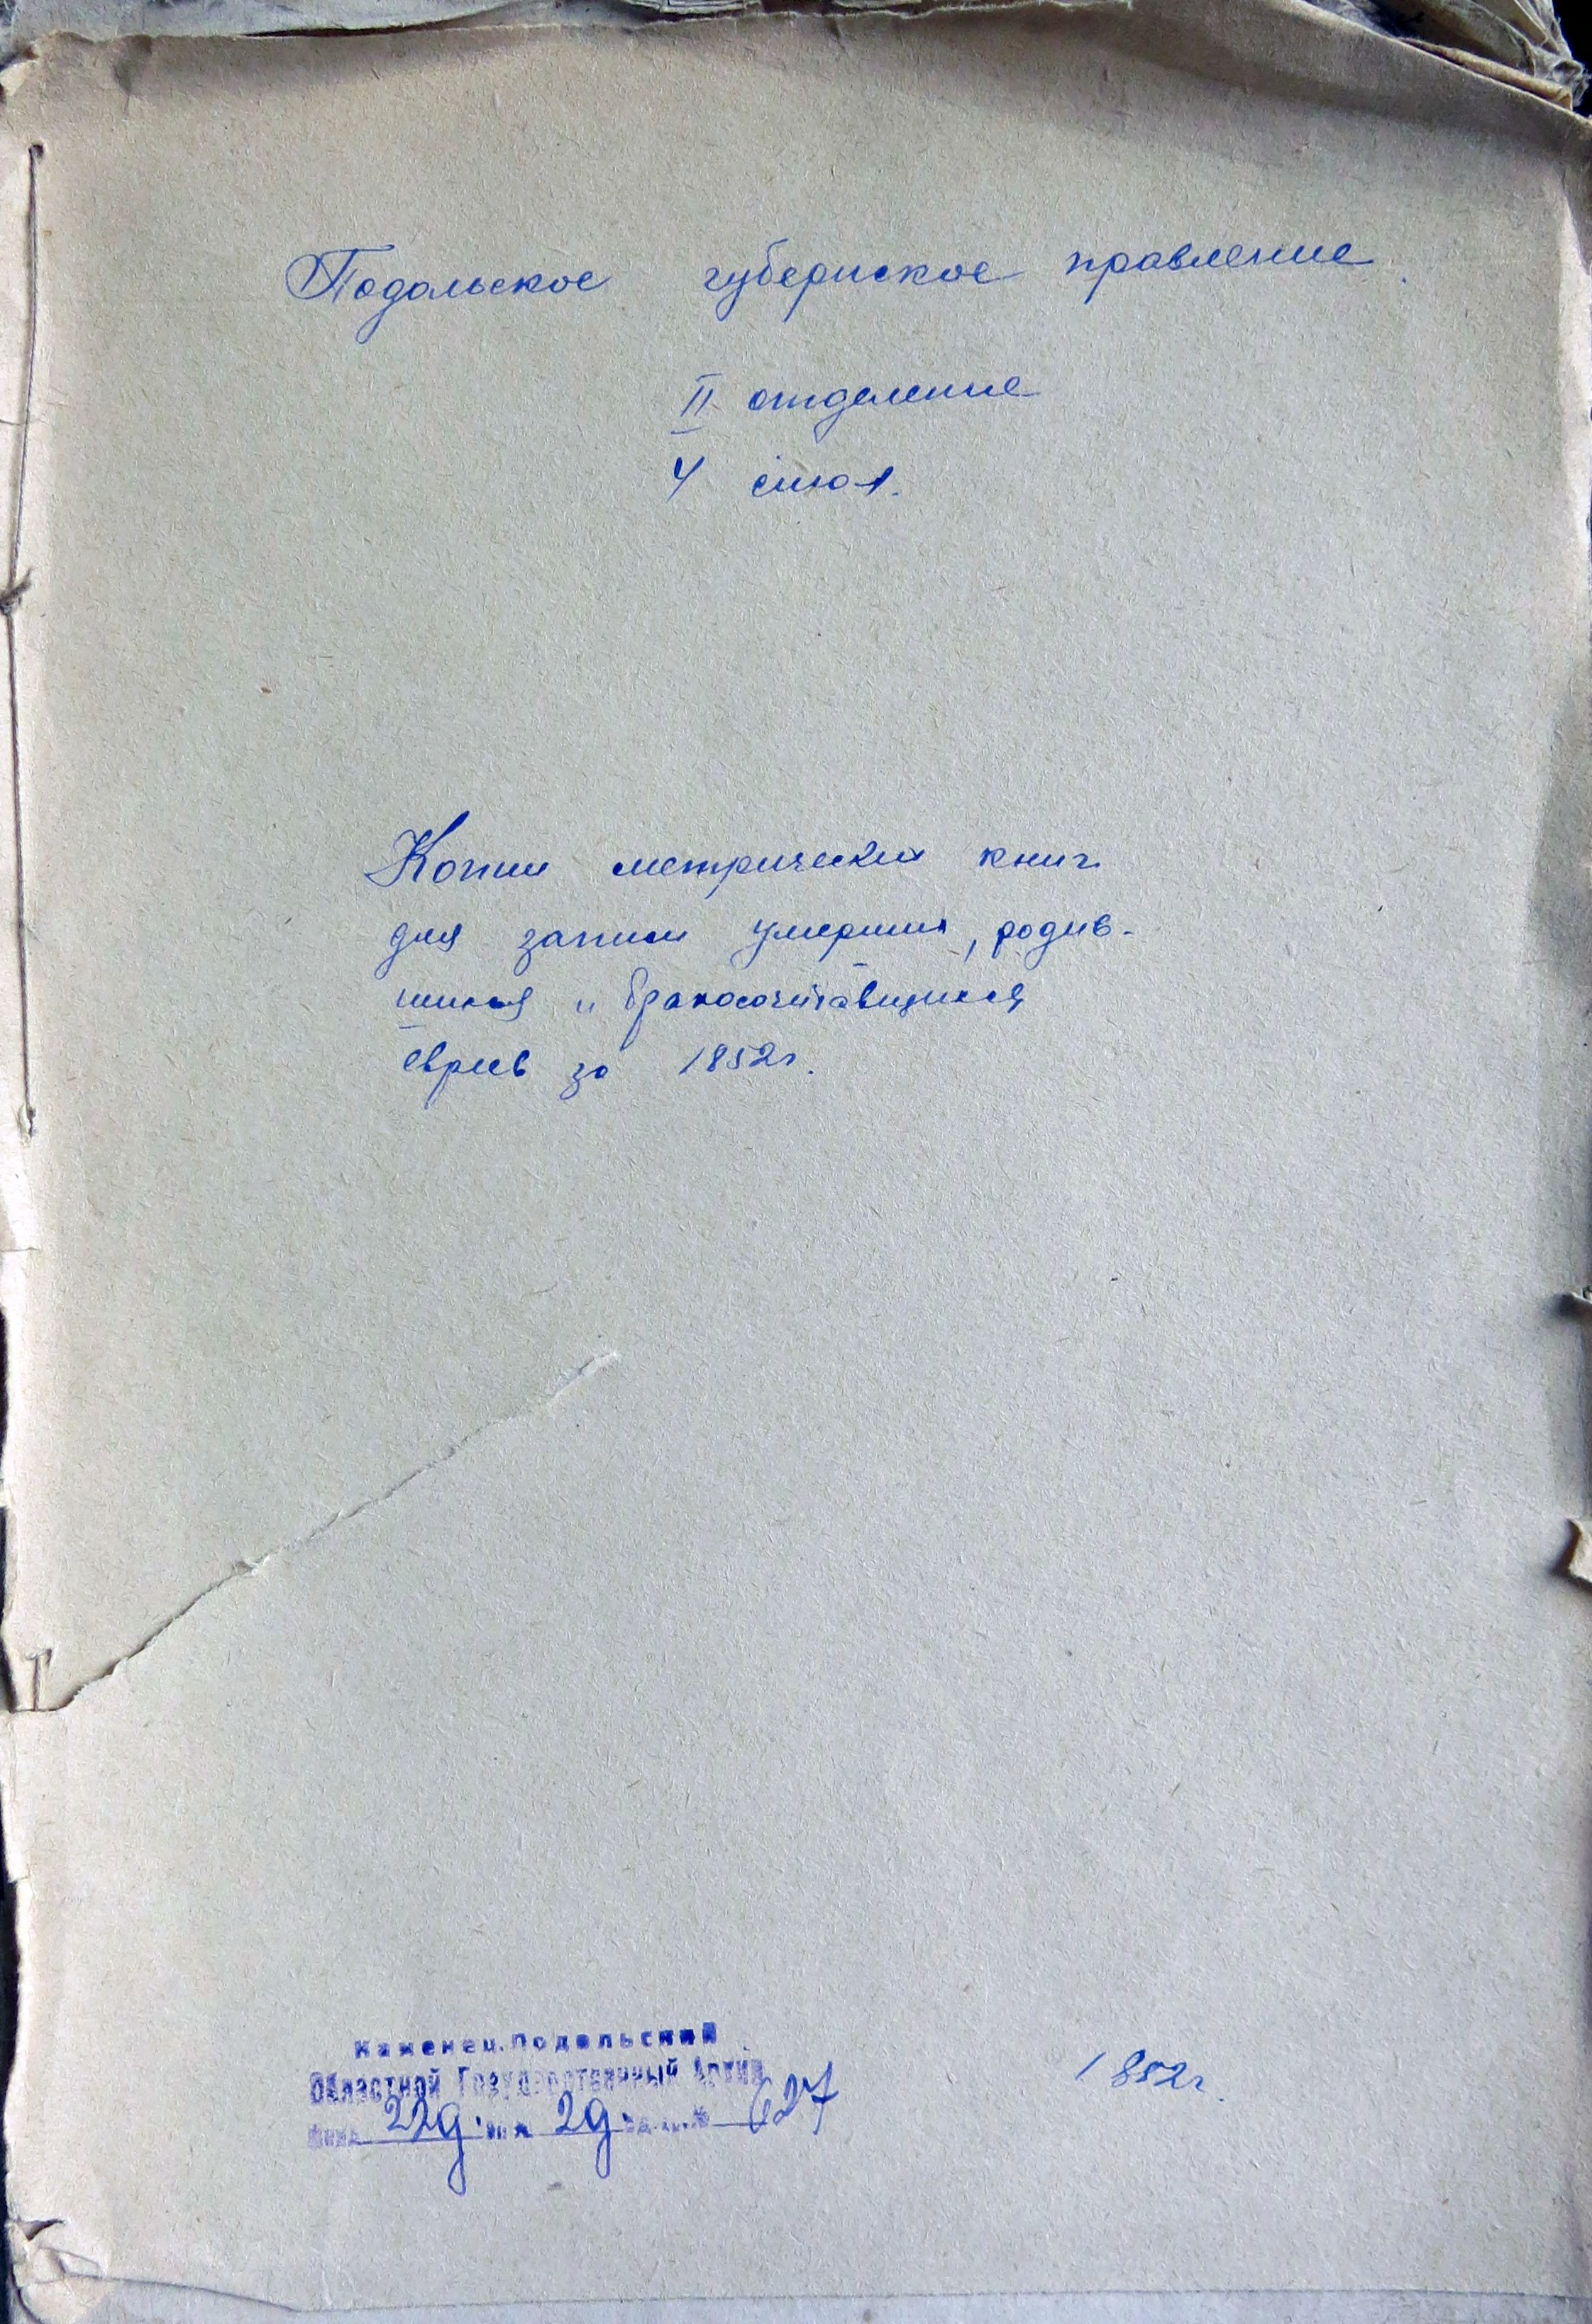 Подольское губернское правление.
II отделение
4 стол.
Копии метрических книг
для записи умерших, родив-
шихся и бракосочетавщихся
евреев за 1852г.
Каменец-Подольский
Областной Государственный Архив
Фонд 229 оп. 29. ед. хр. № 627
1852г.